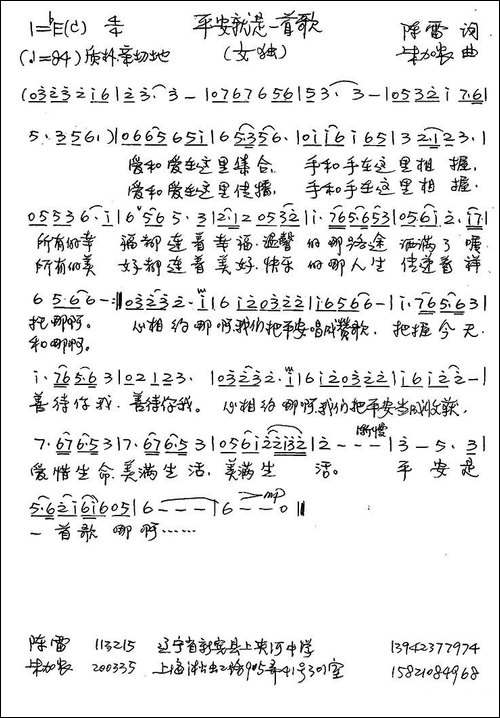 1=♭E(C) 4/4 平安就是一首歌 陈雷 词
(♩=84) 质朴亲切地 (女独) 曲
(03232161|23·3—|07676561|53·3—|053217·61|
5·3561·)|0665651|65·356·|01161651|321123·|
爱和爱在这里集合, 手和手在这里相握,
爱和爱在这里传播, 手和手在这里相握,
055361|6565·3|2·120532|1·765653|05612·17|
所有的幸福都连着幸福,温馨的那路途洒满了暖
所有的美好都连着美好,快乐的那人生传递着祥
65·66—:|03232·|61203221|16566—|1·765·63|
把哪啊。 心相约哪啊我们把平安唱成赞歌, 把握今天
和哪啊。
1·765·63|02123·|03232·|61203221|16122—|
善待你我,善待你我。 心相约哪啊我们把平安当成收获,
7·67653|7·67653|05612232|2———|3—5·3|
渐慢
爱惜生命,美满生活,美满生活。 平安是
mp
5·6216165|6———|6——0‖
一首歌哪啊……
陈雷 113215 辽宁省新宾县上夹河中学 13942377974
200335 上海淞虹路905弄41号301室 15821084968